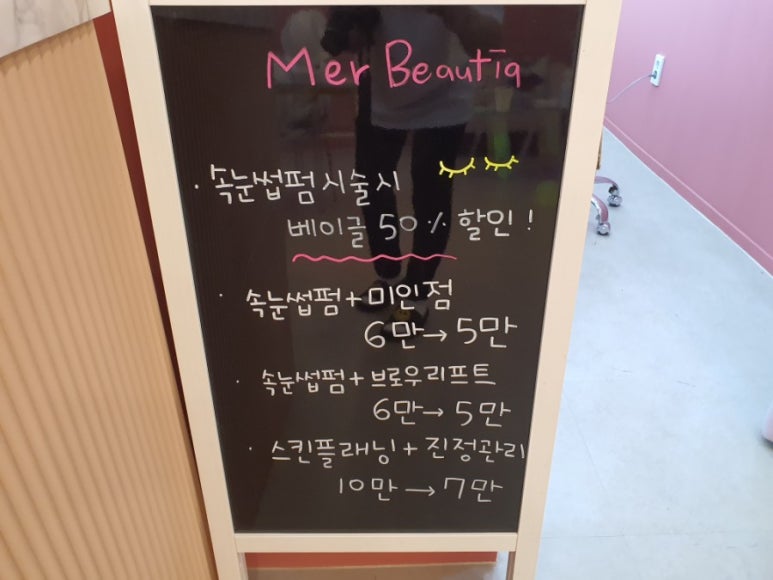 Mer Beautia
· 속눈썹펌 시술시
베이글 50% 할인!
· 속눈썹펌+미인점
6만→5만
· 속눈썹펌+브로우리프트
6만→5만
· 스킨플래닝+진정관리
10만→7만